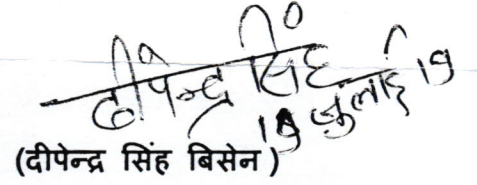 दीपेन्द्र सिंह
19 जुलाई 19
(दीपेन्द्र सिंह बिसेन)